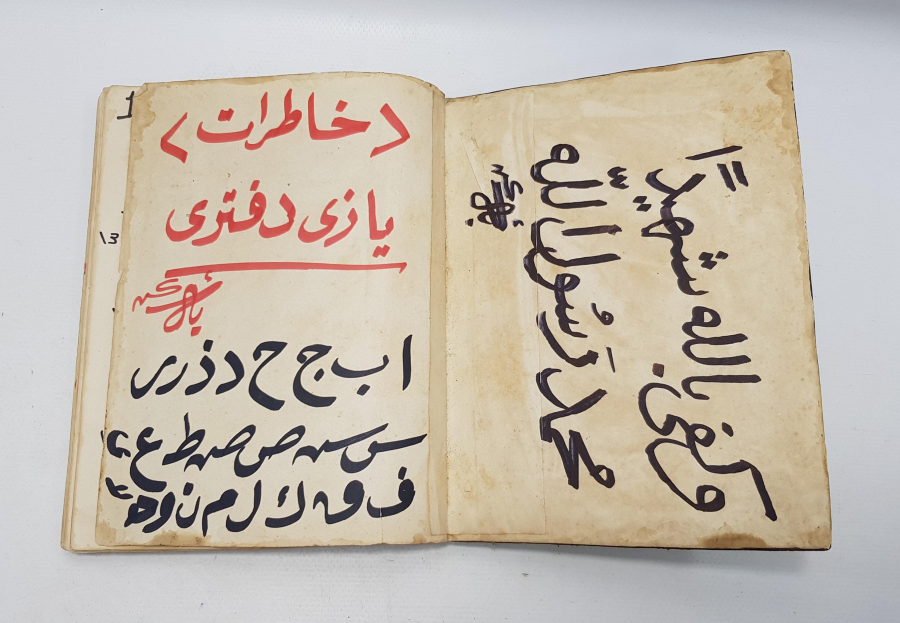 (خاطرات)
يازى دفترى
ا ب ج ح د ذ ر ى
س س ص ص ط ع
ف ق ك ل م ن و ه
وكفى بالله شهيدًا
محمد رَسُول الله